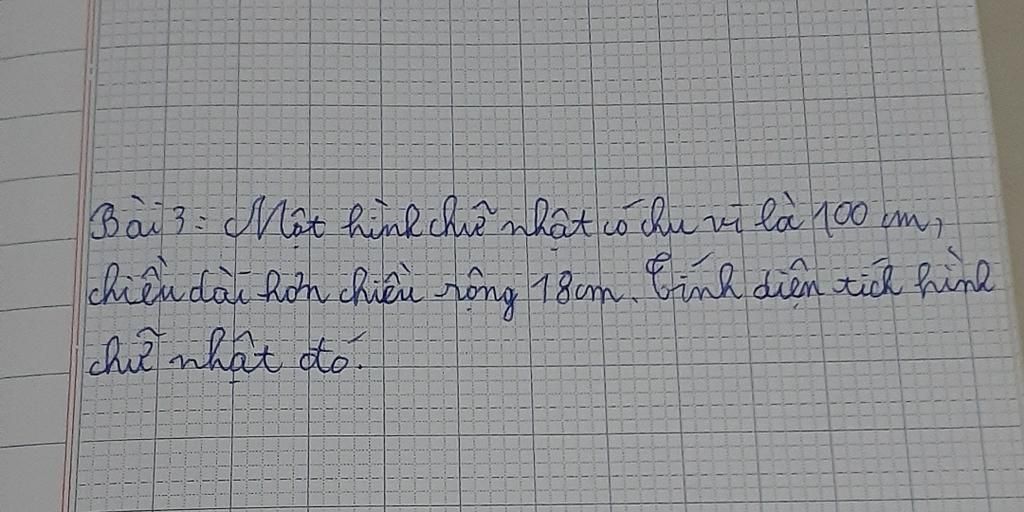 Bài 3: Một hình chữ nhật có chu vi là 100 cm,
chiều dài hơn chiều rộng 18cm. Tính diện tích hình
chữ nhật đó.